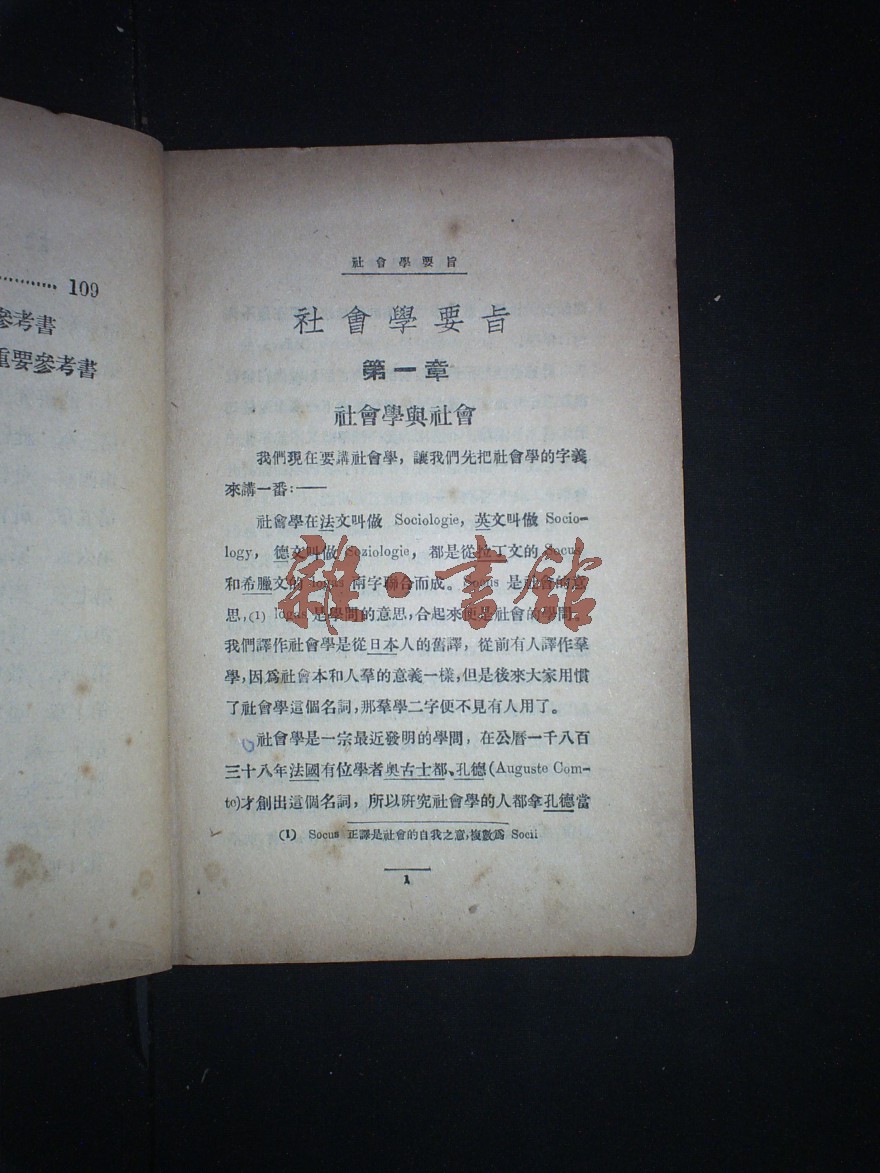 ………… 109
參考書
重要參考書
社會學要旨
社會學要旨
第一章
社會學與社會
我們現在要講社會學，讓我們先把社會學的字義
來講一番：——
社會學在法文叫做 Sociologie，英文叫做 Socio-
logy，德文叫做 Soziologie，都是從拉丁文的 Socus
和希臘文的 logus 兩字聯合而成。Socus 是社會的意
思，(1) logus 是學問的意思，合起來便是社會的學問。
我們譯作社會學是從日本人的舊譯，從前有人譯作羣
學，因爲社會本和人羣的意義一樣，但是後來大家用慣
了社會學這個名詞，那羣學二字便不見有人用了。
社會學是一宗最近發明的學問，在公曆一千八百
三十八年法國有位學者奧古士都、孔德(Auguste Com-
te)才創出這個名詞，所以研究社會學的人都拿孔德當
(1) Socus 正譯是社會的自我之意，複數爲 Socii
1
雜·書館